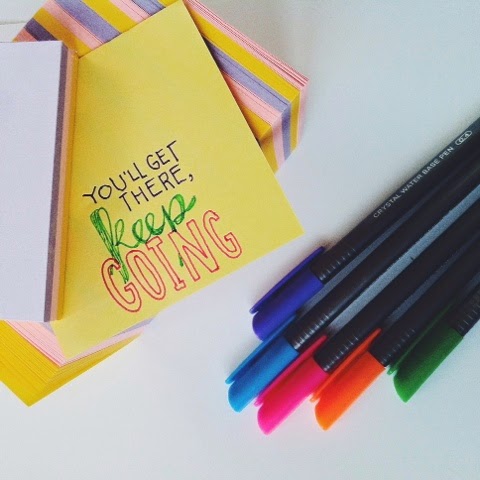 YOU'LL GET
THERE,
keep
GOING
CRYSTAL WATER BASE PEN (0.4)